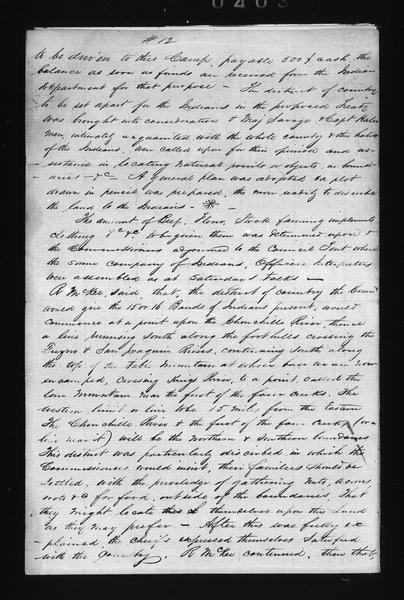 # 12
to be driven to this Camp, payable 500 $ cash the
balance as soon as funds are received from the Indian
Department for that purpose — The district of country
to be set apart for the Indians in the proposed Treaty
was brought into consideration & Maj Savage & Capt
men, intimately acquainted with the whole country & the habits
of the Indians, were called upon for their opinion and as-
sistance in locating natural points or objects, as bound-
aries — &c — A General plan was adopted & a plot
drawn in pencil was prepared, the more readily to describe
the land to the Indians —
The amount of Beef, Flour, Stock farming implements
clothing &c &c to be given them was determined upon &
the Commissioners adjourned to the Council Tent where
the same company of Indians, Officers Interpreters
were assembled as at Saturdays talks —
R. McKee, said, that, the district of country the Comrs
would give the 15 or 16 Bands of Indians present, would
commence at a point upon the Chouchille River, thence
a line running south along the foothills crossing the
Fresno & San Joaquin Rivers, continuing south along
the top of the Table Mountain at whose base we are now
encamped, crossing Kings River, to a point, called the
lone Mountain near the first of the four creeks. The
western limit or line abt 15 miles from the Eastern
The Chouchille River & the first of the four creeks (or a
line near it) will be the Northern & Southern boundaries
This district was particularly described in which the
Commissioners would insist, their families should be
settled, with the priviledge of gathering nuts, acorns,
roots &c for food, outside of the boundaries, that
they might locate themselves upon the Land
as they may prefer — After this was fully ex-
plained the chiefs expressed themselves satisfied
with the country. R McKee continued, then that,